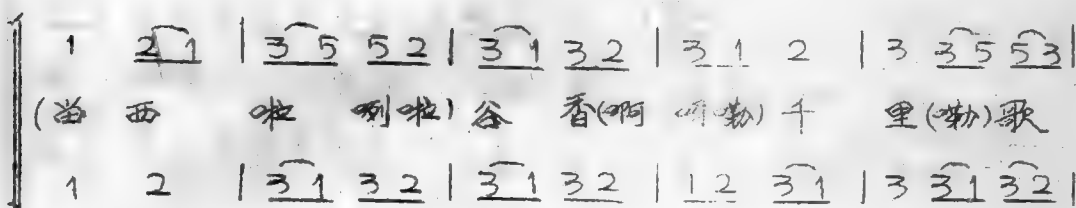 1 2 1 | 3 5 5 2 | 3 1 3 2 | 3 1 2 | 3 3 5 5 3 |
西 啦 咧啦) 谷 香(啊 嘞) 千 里(嘞)歌
1 2 | 3 1 3 2 | 3 1 3 2 | 1 2 3 1 | 3 3 1 3 2 |